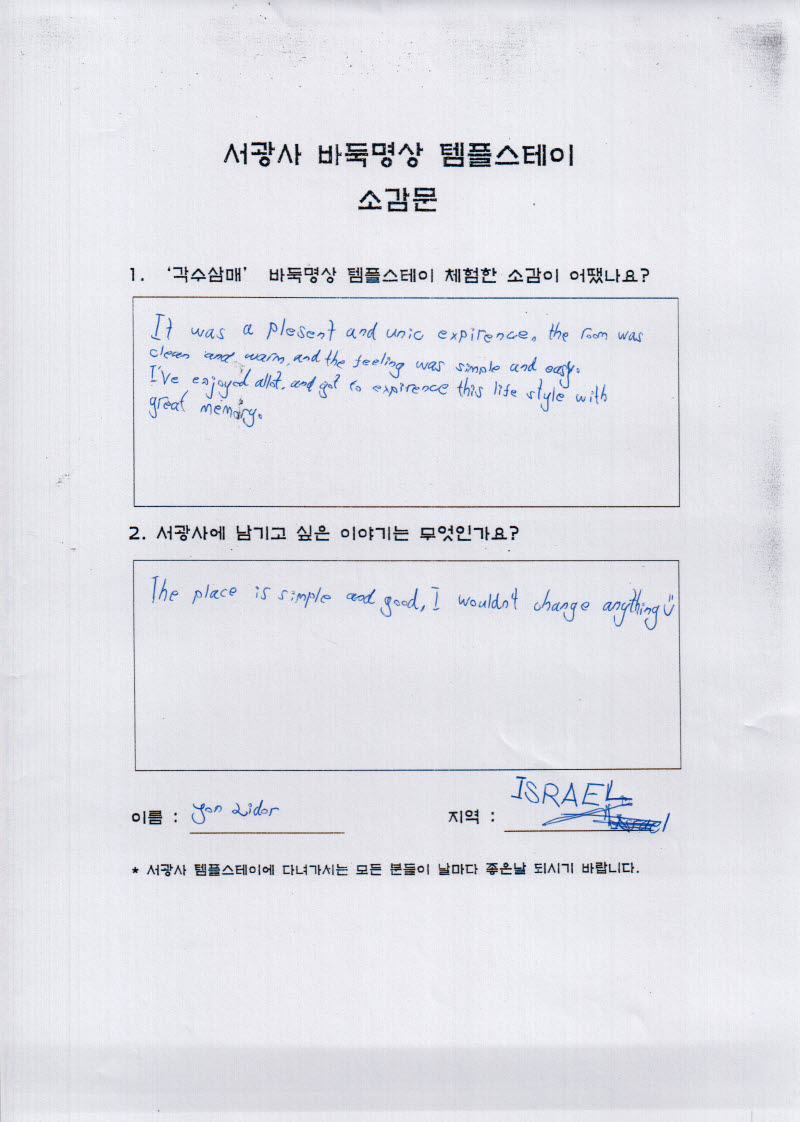 서광사 바둑명상 템플스테이
소감문
1. ‘각수삼매’ 바둑명상 템플스테이 체험한 소감이 어땠나요?
It was a plesent and unic expirence. the room was
clean and warm, and the feeling was simple and easy.
I've enjoyed allot, and got to expirence this life style with
great memory.
2. 서광사에 남기고 싶은 이야기는 무엇인가요?
The place is simple and good, I wouldn't change anything
ISRAEL
이름 : Yon Lidor 지역 : Israel
* 서광사 템플스테이에 다녀가시는 모든 분들이 날마다 좋은날 되시기 바랍니다.